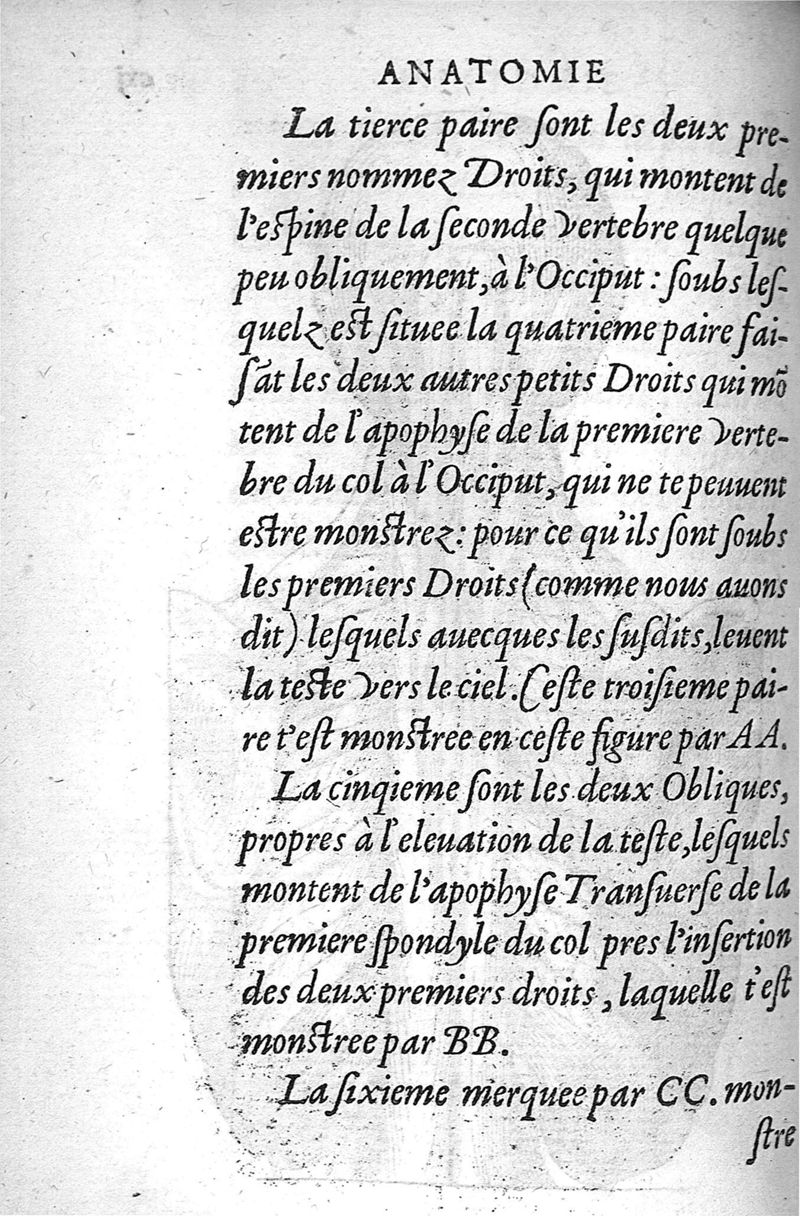 ANATOMIE
La tierce paire ſont les deux pre-
miers nommez Droits, qui montent de
l'eſpine de la ſeconde vertebre quelque
peu obliquement, à l'Occiput : ſoubs leſ-
quelz eſt ſituee la quatrieme paire fai-
ſãt les deux autres petits Droits qui mõ
tent de l'apophyſe de la premiere verte-
bre du col à l'Occiput, qui ne te peuuent
eſtre monſtrez : pour ce qu'ils ſont ſoubs
les premiers Droits (comme nous auons
dit) leſquels auecques les ſuſdits, leuent
la teſte vers le ciel. Ceſte troiſieme pai-
re t'eſt monſtree en ceſte figure par AA.
La cinqieme ſont les deux Obliques,
propres à l'eleuation de la teſte, leſquels
montent de l'apophyſe Tranſuerſe de la
premiere ſpondyle du col pres l'inſertion
des deux premiers droits, laquelle t'eſt
monſtree par BB.
La ſixieme merquee par CC. mon-
ſtre